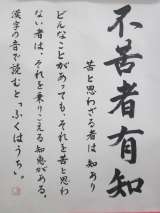 不苦者有知
苦と思わざる者は 知あり
どんなことがあっても、それを苦と思わ
ない者は、それを乗りこえる知恵がある。
漢字の音で読むと「ふくはうち」。